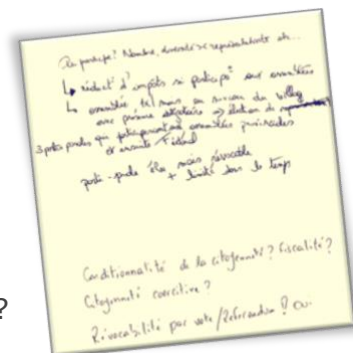 Qui participe? Nombre, diversité se représentants etc...
↳ réduct° d'impôts si participe° aux assemblées
↳ assemblée tel mais au niveau du village
avec présence obligatoire → élection de
3 porte paroles qui participeront aux assemblées provinciales
et ensuite Fédéral
porte-parole élu mais révocable
+ limité dans le temps
Conditionnalité de la citoyenneté? Fiscalité?
Citoyenneté coercitive?
Révocabilité par vote/Referendum? Ou
?